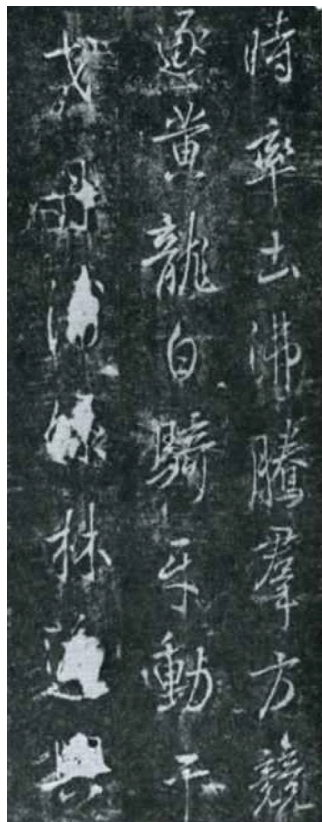 時率土沸騰羣方競
逐黃龍白騎互動干
戈綠林興